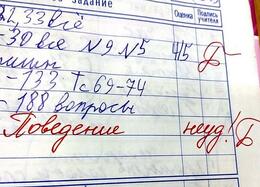 задание Оценка Подпись учителя
33 всё
30 всё N9 N5 4/5 Б-
- 133 Тс 69-74
- 188 вопросы
Поведение неуд! Б